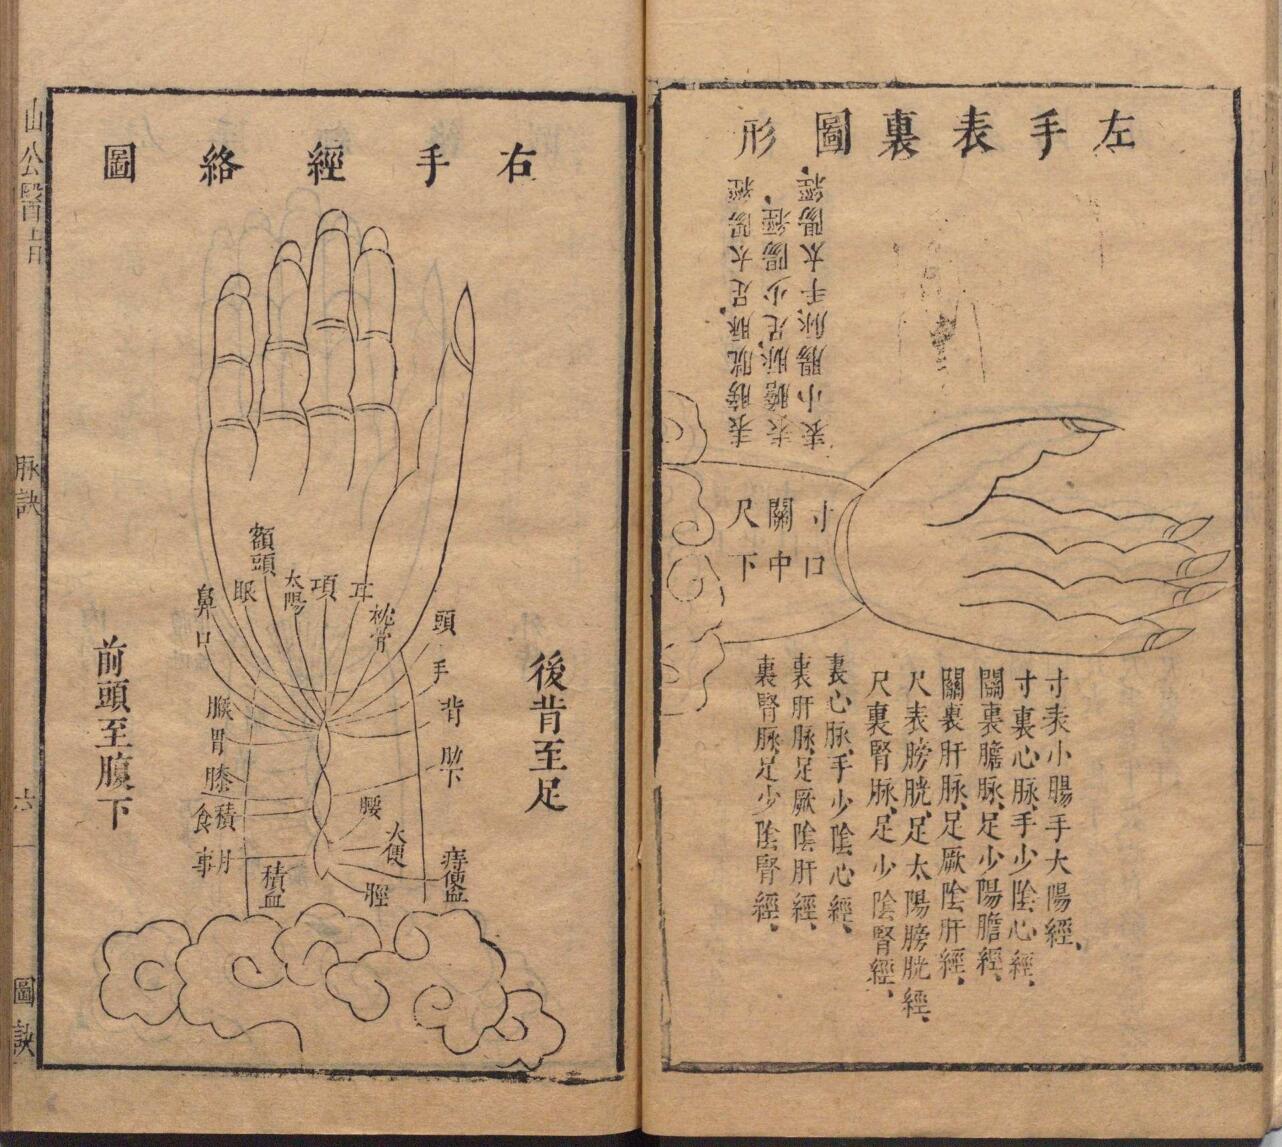 左手表裏圖形
表小腸脉手太陽經、
表膽脉足少陽經、
表膀胱脉、足太陽經
寸口
關中
尺下
寸表小腸手大陽經、
寸裏心脉、手少陰心經、
關裏膽脉、足少陽膽經、
關裏肝脉、足厥陰肝經、
尺表膀胱、足太陽膀胱經、
尺裏腎脉、足少陰腎經、
裏心脉、手少陰心經、
裏肝脉、足厥陰肝經、
裏腎脉、足少陰腎經、
右手經絡圖
後背至足
頭
手
背
肋下
痔便血
枕骨
耳
項
太陽
額頭
眼
鼻
口
胃
膝
積食
月事
積血
腰
大便
脛
前頭至腹下
脉訣
六
圖訣